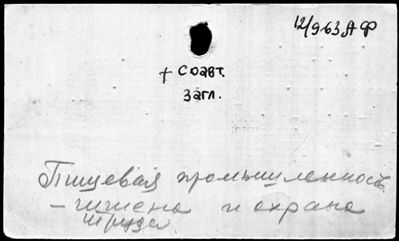 12/963 А Ф
+ Соавт.
Загл.
Пищевая промышленность
- гигиена и охрана
труда